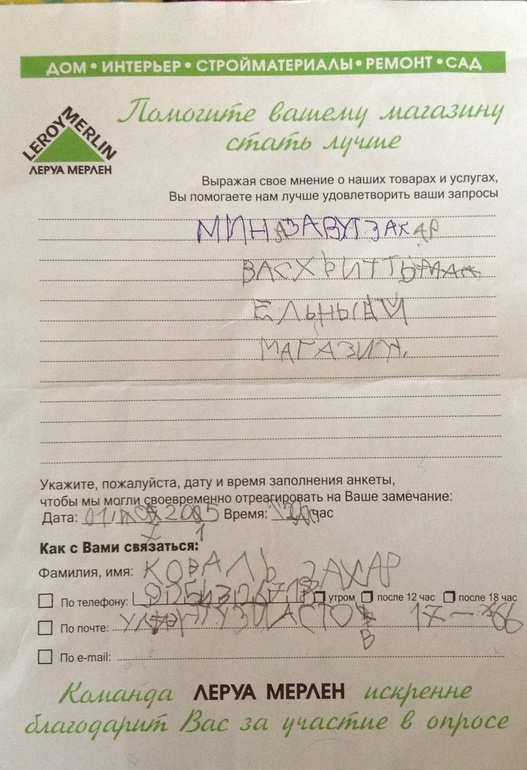 ДОМ • ИНТЕРЬЕР • СТРОЙМАТЕРИАЛЫ • РЕМОНТ • САД
LEROY MERLIN
ЛЕРУА МЕРЛЕН
Помогите вашему магазину
стать лучше
Выражая свое мнение о наших товарах и услугах,
Вы помогаете нам лучше удовлетворить ваши запросы
МИНЯ ЗАВУТ ЗАХАР
ВАСХЬИТТЬ
ЕЛЬНЫЙ
МАГАЗИН.
Укажите, пожалуйста, дату и время заполнения анкеты,
чтобы мы могли своевременно отреагировать на Ваше замечание:
Дата: Время: час
Как с Вами связаться:
Фамилия, имя: КОВАЛЬ ЗАХАР
По телефону: утром после 12 час после 18 час
По почте: 17-
По e-mail:
Команда ЛЕРУА МЕРЛЕН искренне
благодарит Вас за участие в опросе